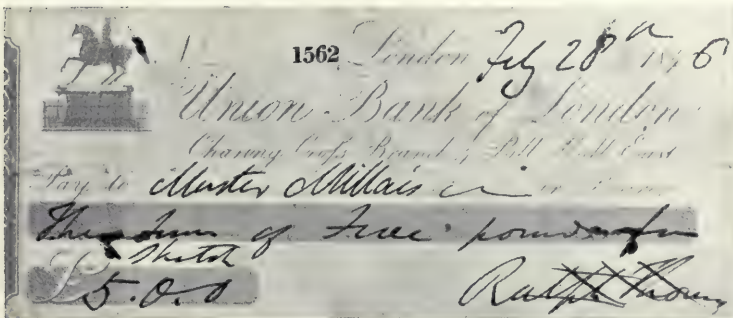 1562 London Feby 28th 1846
Union Bank of London
Charing Cross Branch, 4, Pall Mall East
Pay to Master Millais or
The Sum of Five pounds for
Sketch
£5.0.0 Ralph Thomas